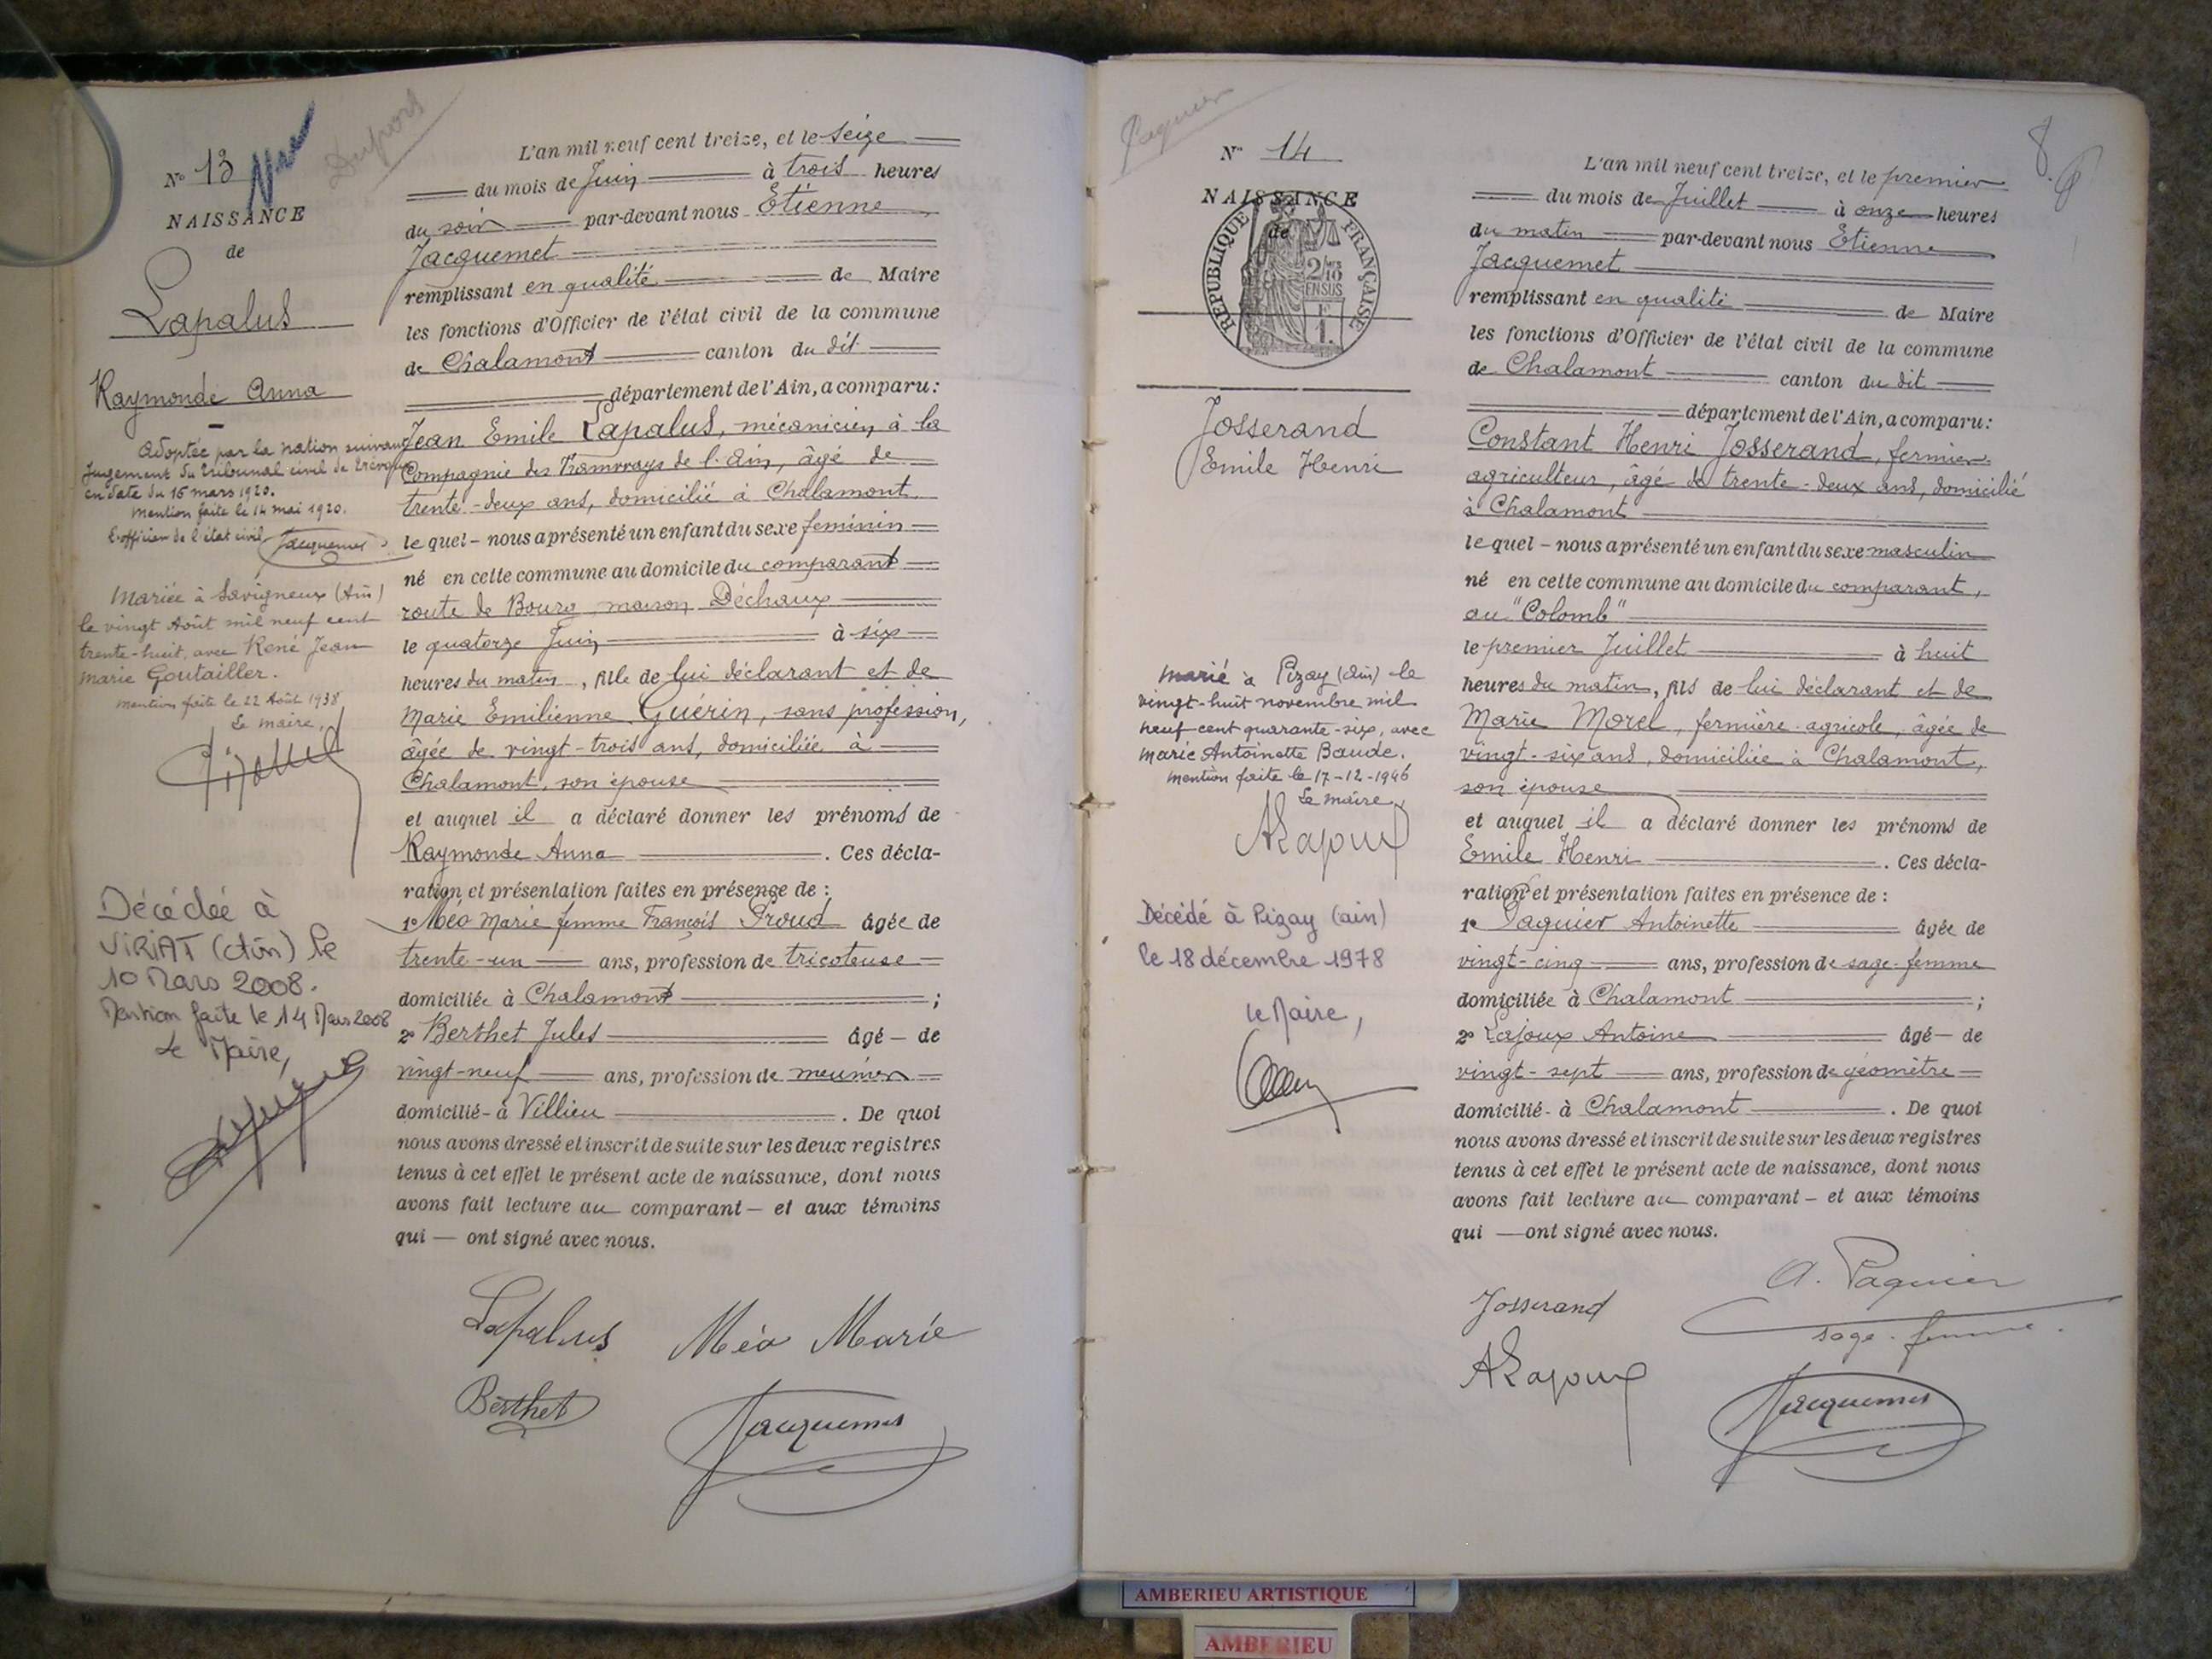 Dupont
N° 13
Nre
NAISSANCE
de
Lapalus
Raymonde Anna
Adoptée par la nation suivant
Jugement du tribunal civil de Trévoux
en date du 16 mars 1920.
Mention faite le 14 mai 1920.
L'officier de l'état civil
Jacquemet
Mariée à Savigneux (Ain)
le vingt Août mil neuf cent
trente-huit, avec René Jean
Marie Goutailler.
Mention faite le 22 Août 1938
Le maire,
Décédée à
VIRIAT (Ain) le
10 Mars 2008.
Mention faite le 14 Mars 2008
Le Maire,
L'an mil neuf cent treize, et le seize
du mois de Juin à trois heures
du soir par-devant nous Etienne
Jacquemet
remplissant en qualité de Maire
les fonctions d'Officier de l'état civil de la commune
de Chalamont canton du dit
département de l'Ain, a comparu:
Jean Emile Lapalus, mécanicien à la
Compagnie des Tramways de l'Ain, âgé de
trente-deux ans, domicilié à Chalamont
le quel - nous a présenté un enfant du sexe féminin
né en cette commune au domicile du comparant
route de Bourg maison Déchaux
le quatorze Juin à six
heures du matin, fille de lui déclarant et de
Marie Emilienne Guérin, sans profession,
âgée de vingt-trois ans, domiciliée à
Chalamont, son épouse
et auquel il a déclaré donner les prénoms de
Raymonde Anna. Ces décla-
ration et présentation faites en présence de :
1° Méo Marie femme François Proud âgée de
trente-un ans, profession de tricoteuse
domiciliée à Chalamont ;
2° Berthet Jules âgé - de
vingt-neuf ans, profession de meunier
domicilié - à Villieu. De quoi
nous avons dressé et inscrit de suite sur les deux registres
tenus à cet effet le présent acte de naissance, dont nous
avons fait lecture au comparant - et aux témoins
qui — ont signé avec nous.
Lapalus Méo Marie
Berthet Jacquemet
Paquier
8
N° 14
NAISSANCE
de
REPUBLIQUE FRANÇAISE
2/10 EN SUS
1 F.
Josserand
Emile Henri
Marié à Pizay (Ain) le
vingt-huit novembre mil
neuf cent quarante-six, avec
Marie Antoinette Baude.
Mention faite le 17-12-1946
Le maire,
ALajoux
Décédé à Pizay (ain)
le 18 décembre 1978
le Maire,
L'an mil neuf cent treize, et le premier
du mois de Juillet à onze heures
du matin par-devant nous Etienne
Jacquemet
remplissant en qualité de Maire
les fonctions d'Officier de l'état civil de la commune
de Chalamont canton du dit
département de l'Ain, a comparu:
Constant Henri Josserand, fermier
agriculteur, âgé de trente-deux ans, domicilié
à Chalamont
le quel - nous a présenté un enfant du sexe masculin
né en cette commune au domicile du comparant,
au "Colomb"
le premier Juillet à huit
heures du matin, fils de lui déclarant et de
Marie Morel, fermière-agricole, âgée de
vingt-six ans, domiciliée à Chalamont,
son épouse
et auquel il a déclaré donner les prénoms de
Emile Henri. Ces décla-
ration et présentation faites en présence de :
1° Paquier Antoinette âgée de
vingt-cinq ans, profession de sage-femme
domiciliée à Chalamont ;
2° Lajoux Antoine âgé - de
vingt-sept ans, profession de géomètre
domicilié - à Chalamont. De quoi
nous avons dressé et inscrit de suite sur les deux registres
tenus à cet effet le présent acte de naissance, dont nous
avons fait lecture au comparant - et aux témoins
qui — ont signé avec nous.
A. Paquier
Josserand sage-femme.
ALajoux Jacquemet
AMBERIEU ARTISTIQUE
AMBERIEU